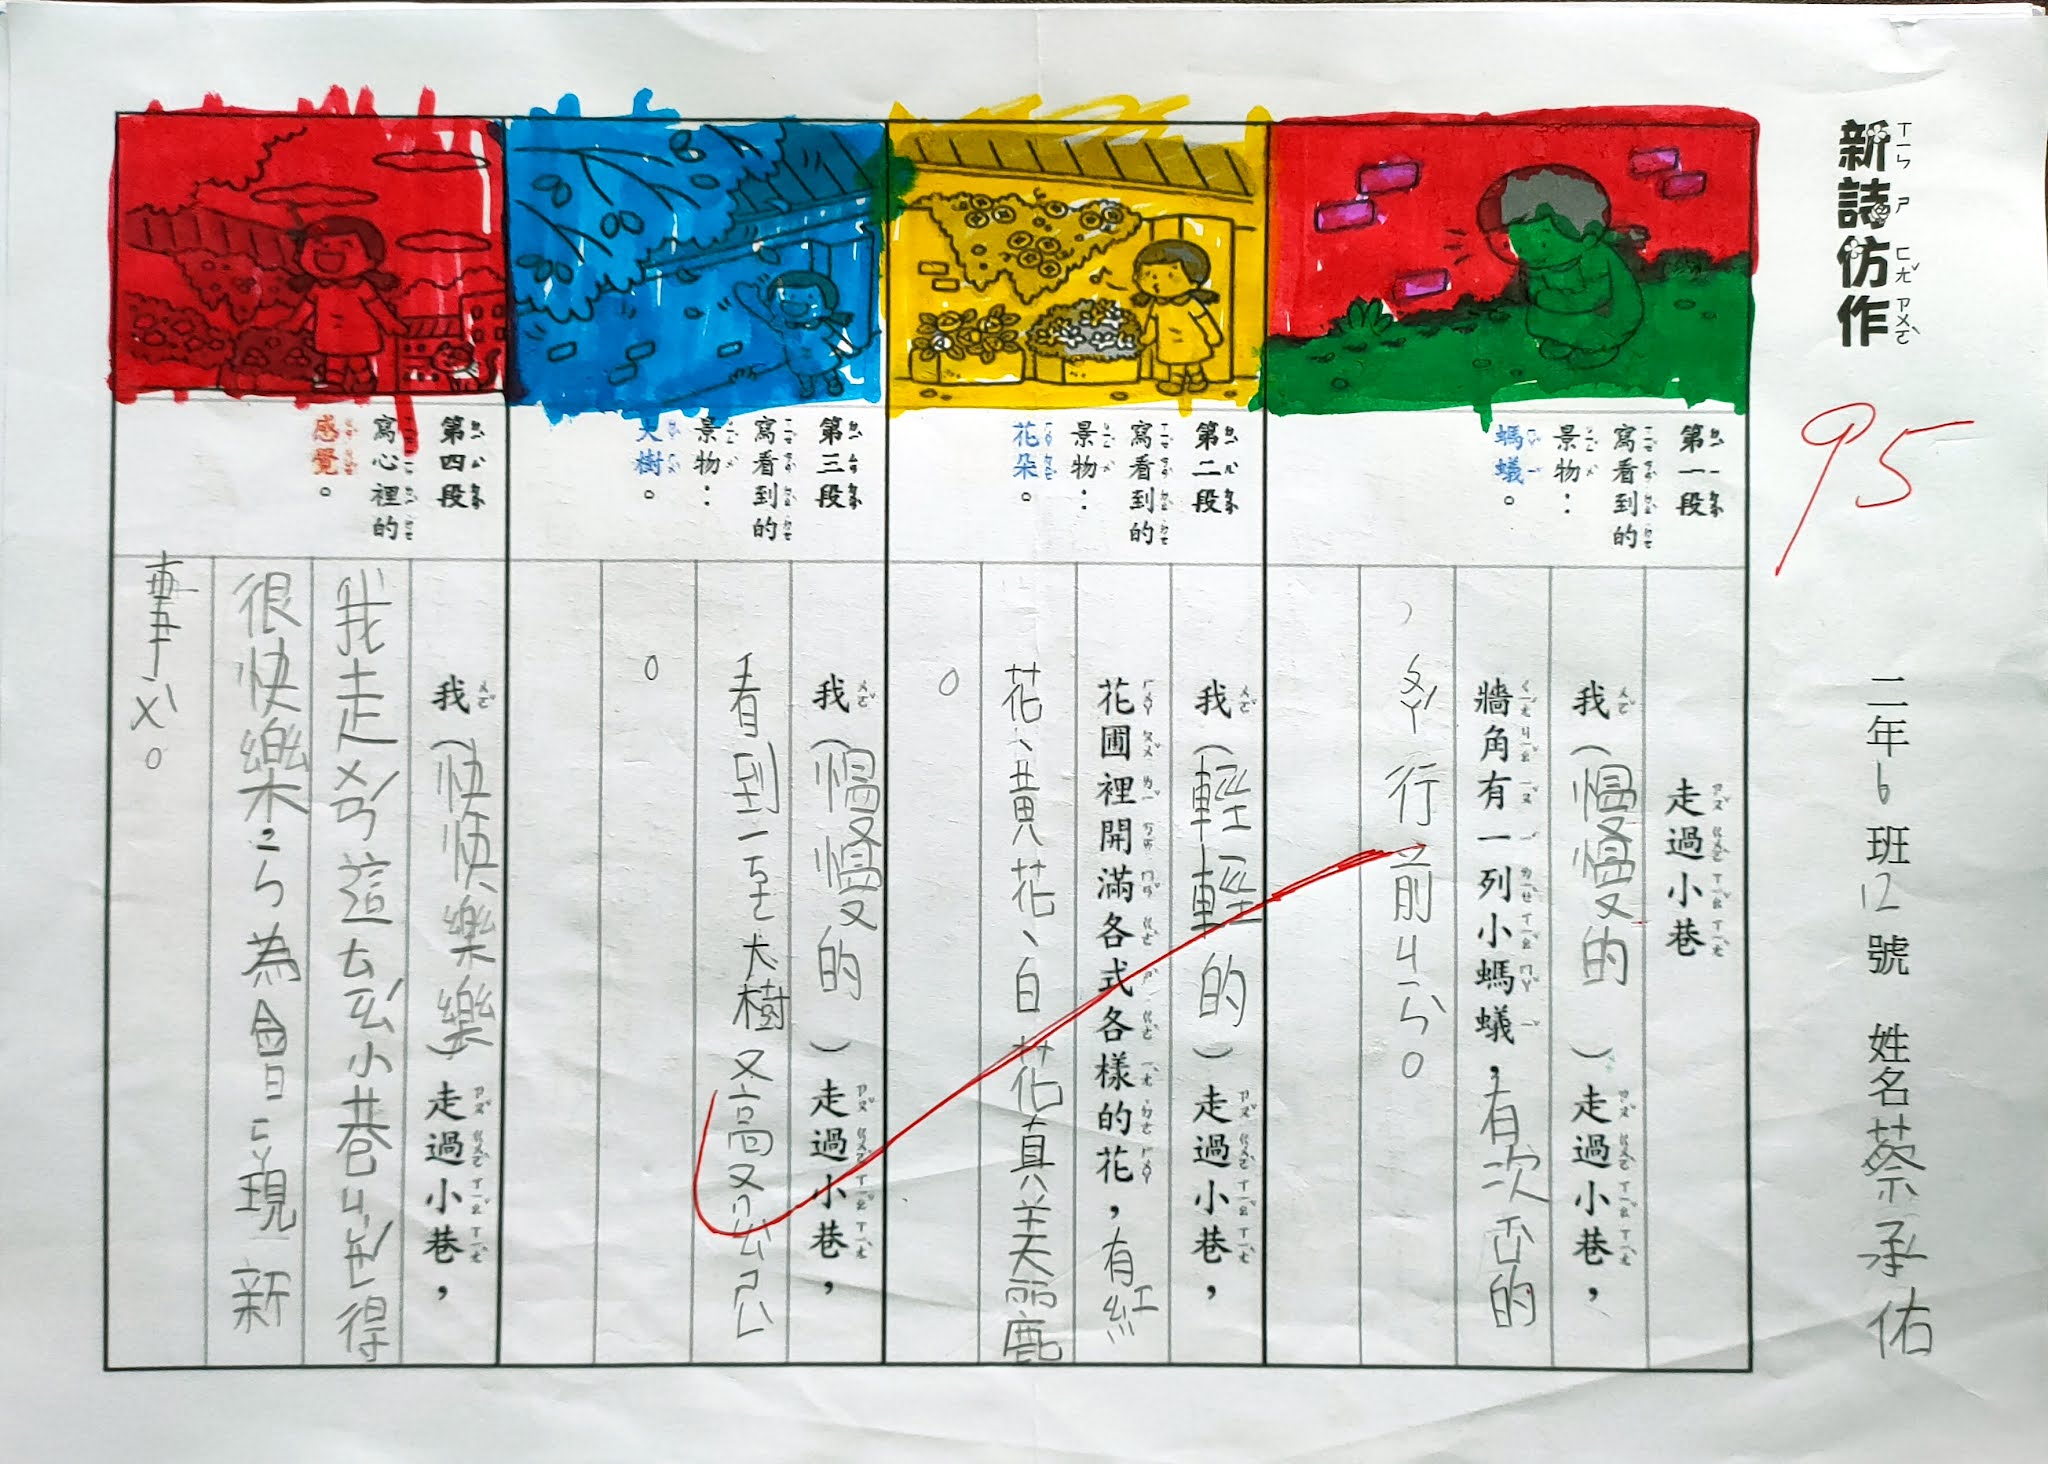 新詩仿作
95
二年6班12號 姓名蔡承佑
第一段
寫看到的
景物：
螞蟻。
走過小巷
我（慢慢的）走過小巷，
牆角有一列小螞蟻，有次否的
，ㄆㄚˊ行前ㄐㄧㄣˋ。
第二段
寫看到的
景物：
花朵。
我（輕輕的）走過小巷，
花圃裡開滿各式各樣的花，有紅
花、黃花、白花真美麗
。
第三段
寫看到的
景物：
大樹。
我（慢慢的）走過小巷，
看到一至大樹又高又
。
第四段
寫心裡的
感覺。
我（快快樂樂）走過小巷，
我走ㄨㄢˊ這ㄊㄠˋ小巷ㄐㄩㄝˊ得
很快樂ㄧㄣ為會ㄈㄚ現新
事ㄨˋ。